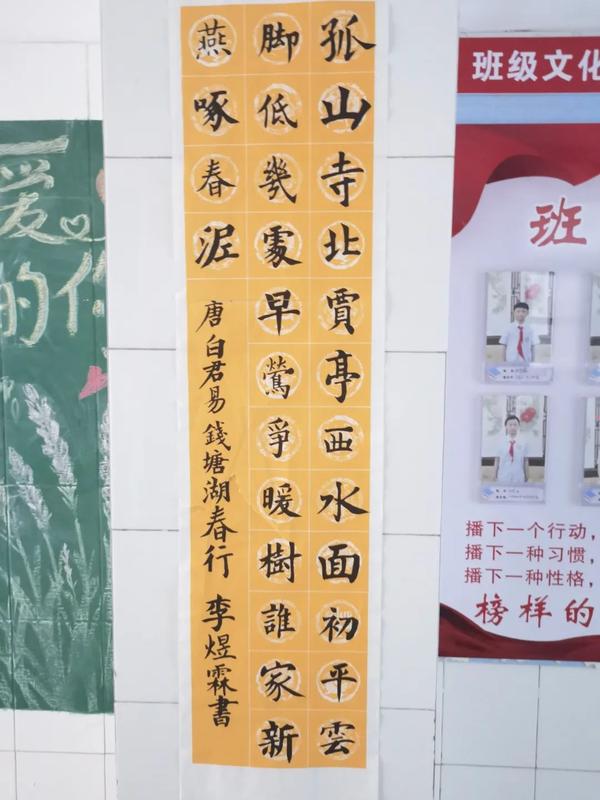 孤山寺北賈亭西水面初平雲
脚低幾處早鶯爭暖樹誰家新
燕啄春泥
唐白君易錢塘湖春行 李煜霖書
爱
的你
班级文化
班
播下一个行动，
播下一种习惯，
播下一种性格，
榜样的